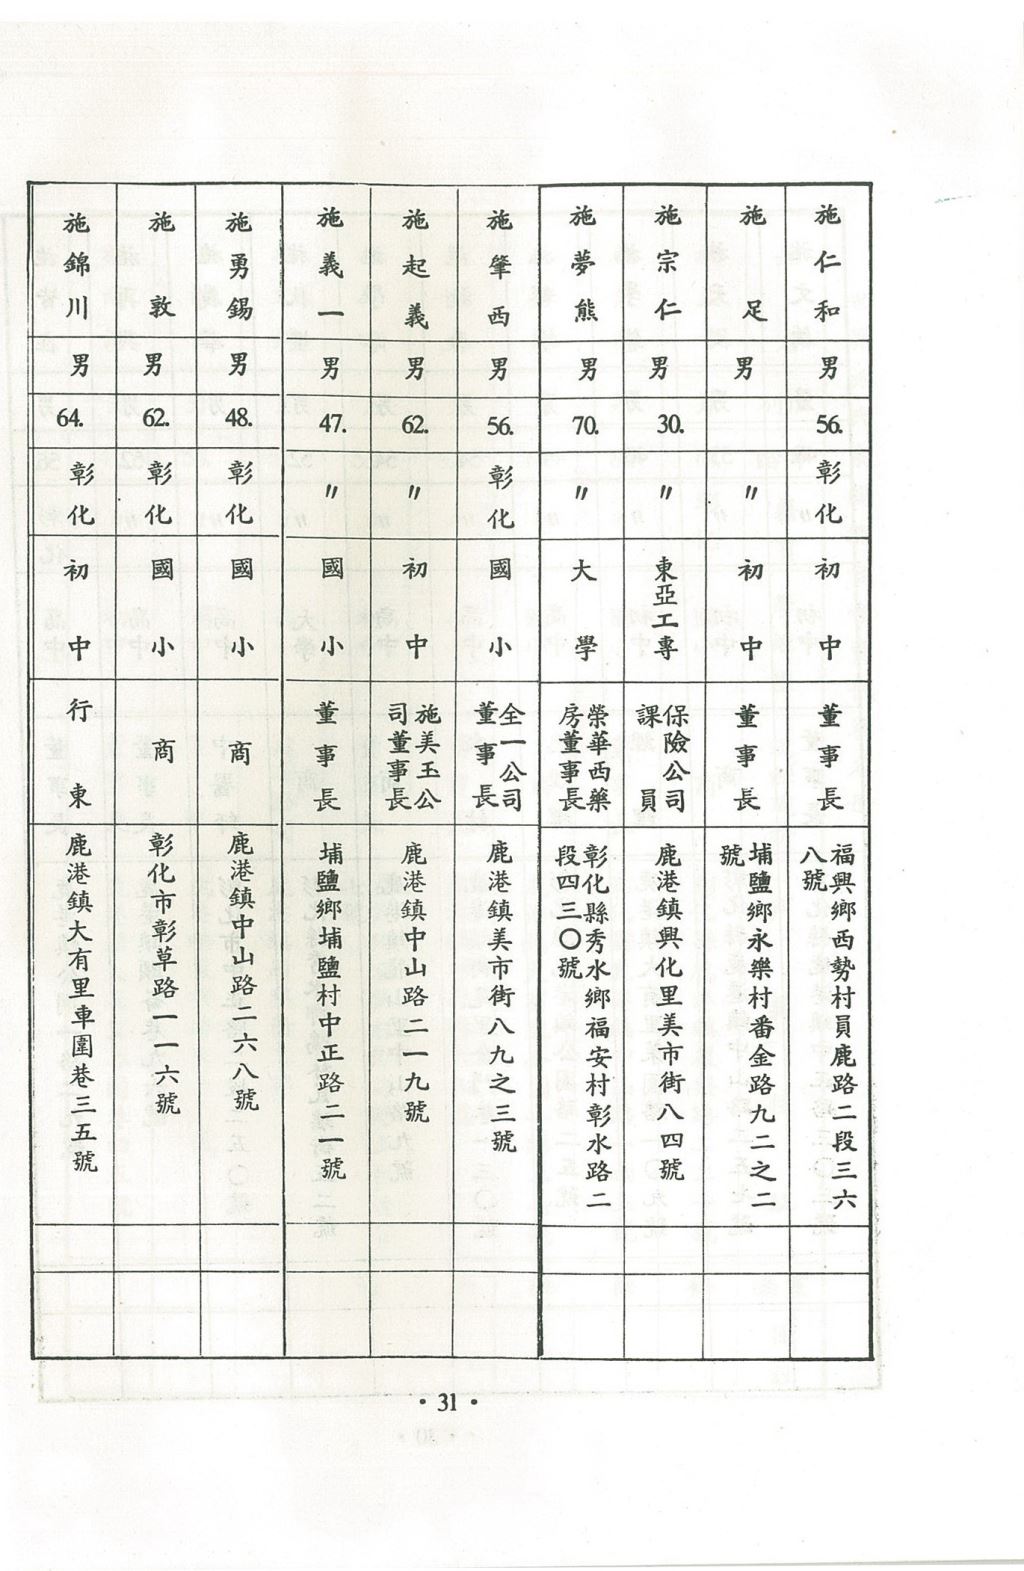 施仁和
男
56.
彰化
初中
董事長
福興鄉西勢村員鹿路二段三六
八號
施足
男
〃
初中
董事長
埔鹽鄉永樂村番金路九二之二
號
施宗仁
男
30.
〃
東亞工專
保險公司
課員
鹿港鎮興化里美市街八四號
施夢熊
男
70.
〃
大學
榮華西藥
房董事長
彰化縣秀水鄉福安村彰水路二
段四三〇號
施肇西
男
56.
彰化
國小
全一公司
董事長
鹿港鎮美市街八九之三號
施起義
男
62.
〃
初中
施美玉公
司董事長
鹿港鎮中山路二一九號
施義一
男
47.
〃
國小
董事長
埔鹽鄉埔鹽村中正路二一號
施勇錫
男
48.
彰化
國小
商
鹿港鎮中山路二六八號
施敦
男
62.
彰化
國小
商
彰化市彰草路一一六號
施錦川
男
64.
彰化
初中
行東
鹿港鎮大有里車圍巷三五號
• 31 •